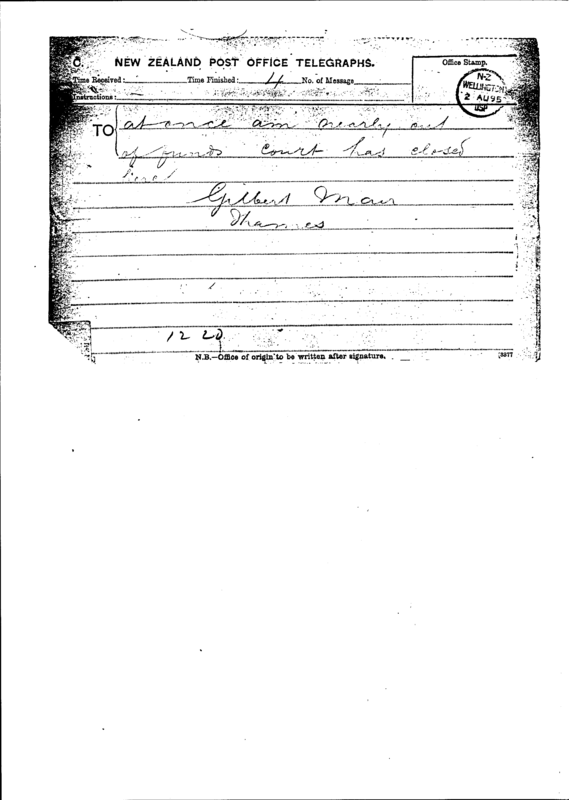 C. NEW ZEALAND POST OFFICE TELEGRAPHS. Office Stamp.
Time Received: Time Finished: 4 No. of Message
Instructions:
N·Z
WELLINGTON
2 AU 95
TO at once am nearly out
of funds Court has closed
here
Gilbert Mair
Thames
12 20
N.B.—Office of origin to be written after signature.